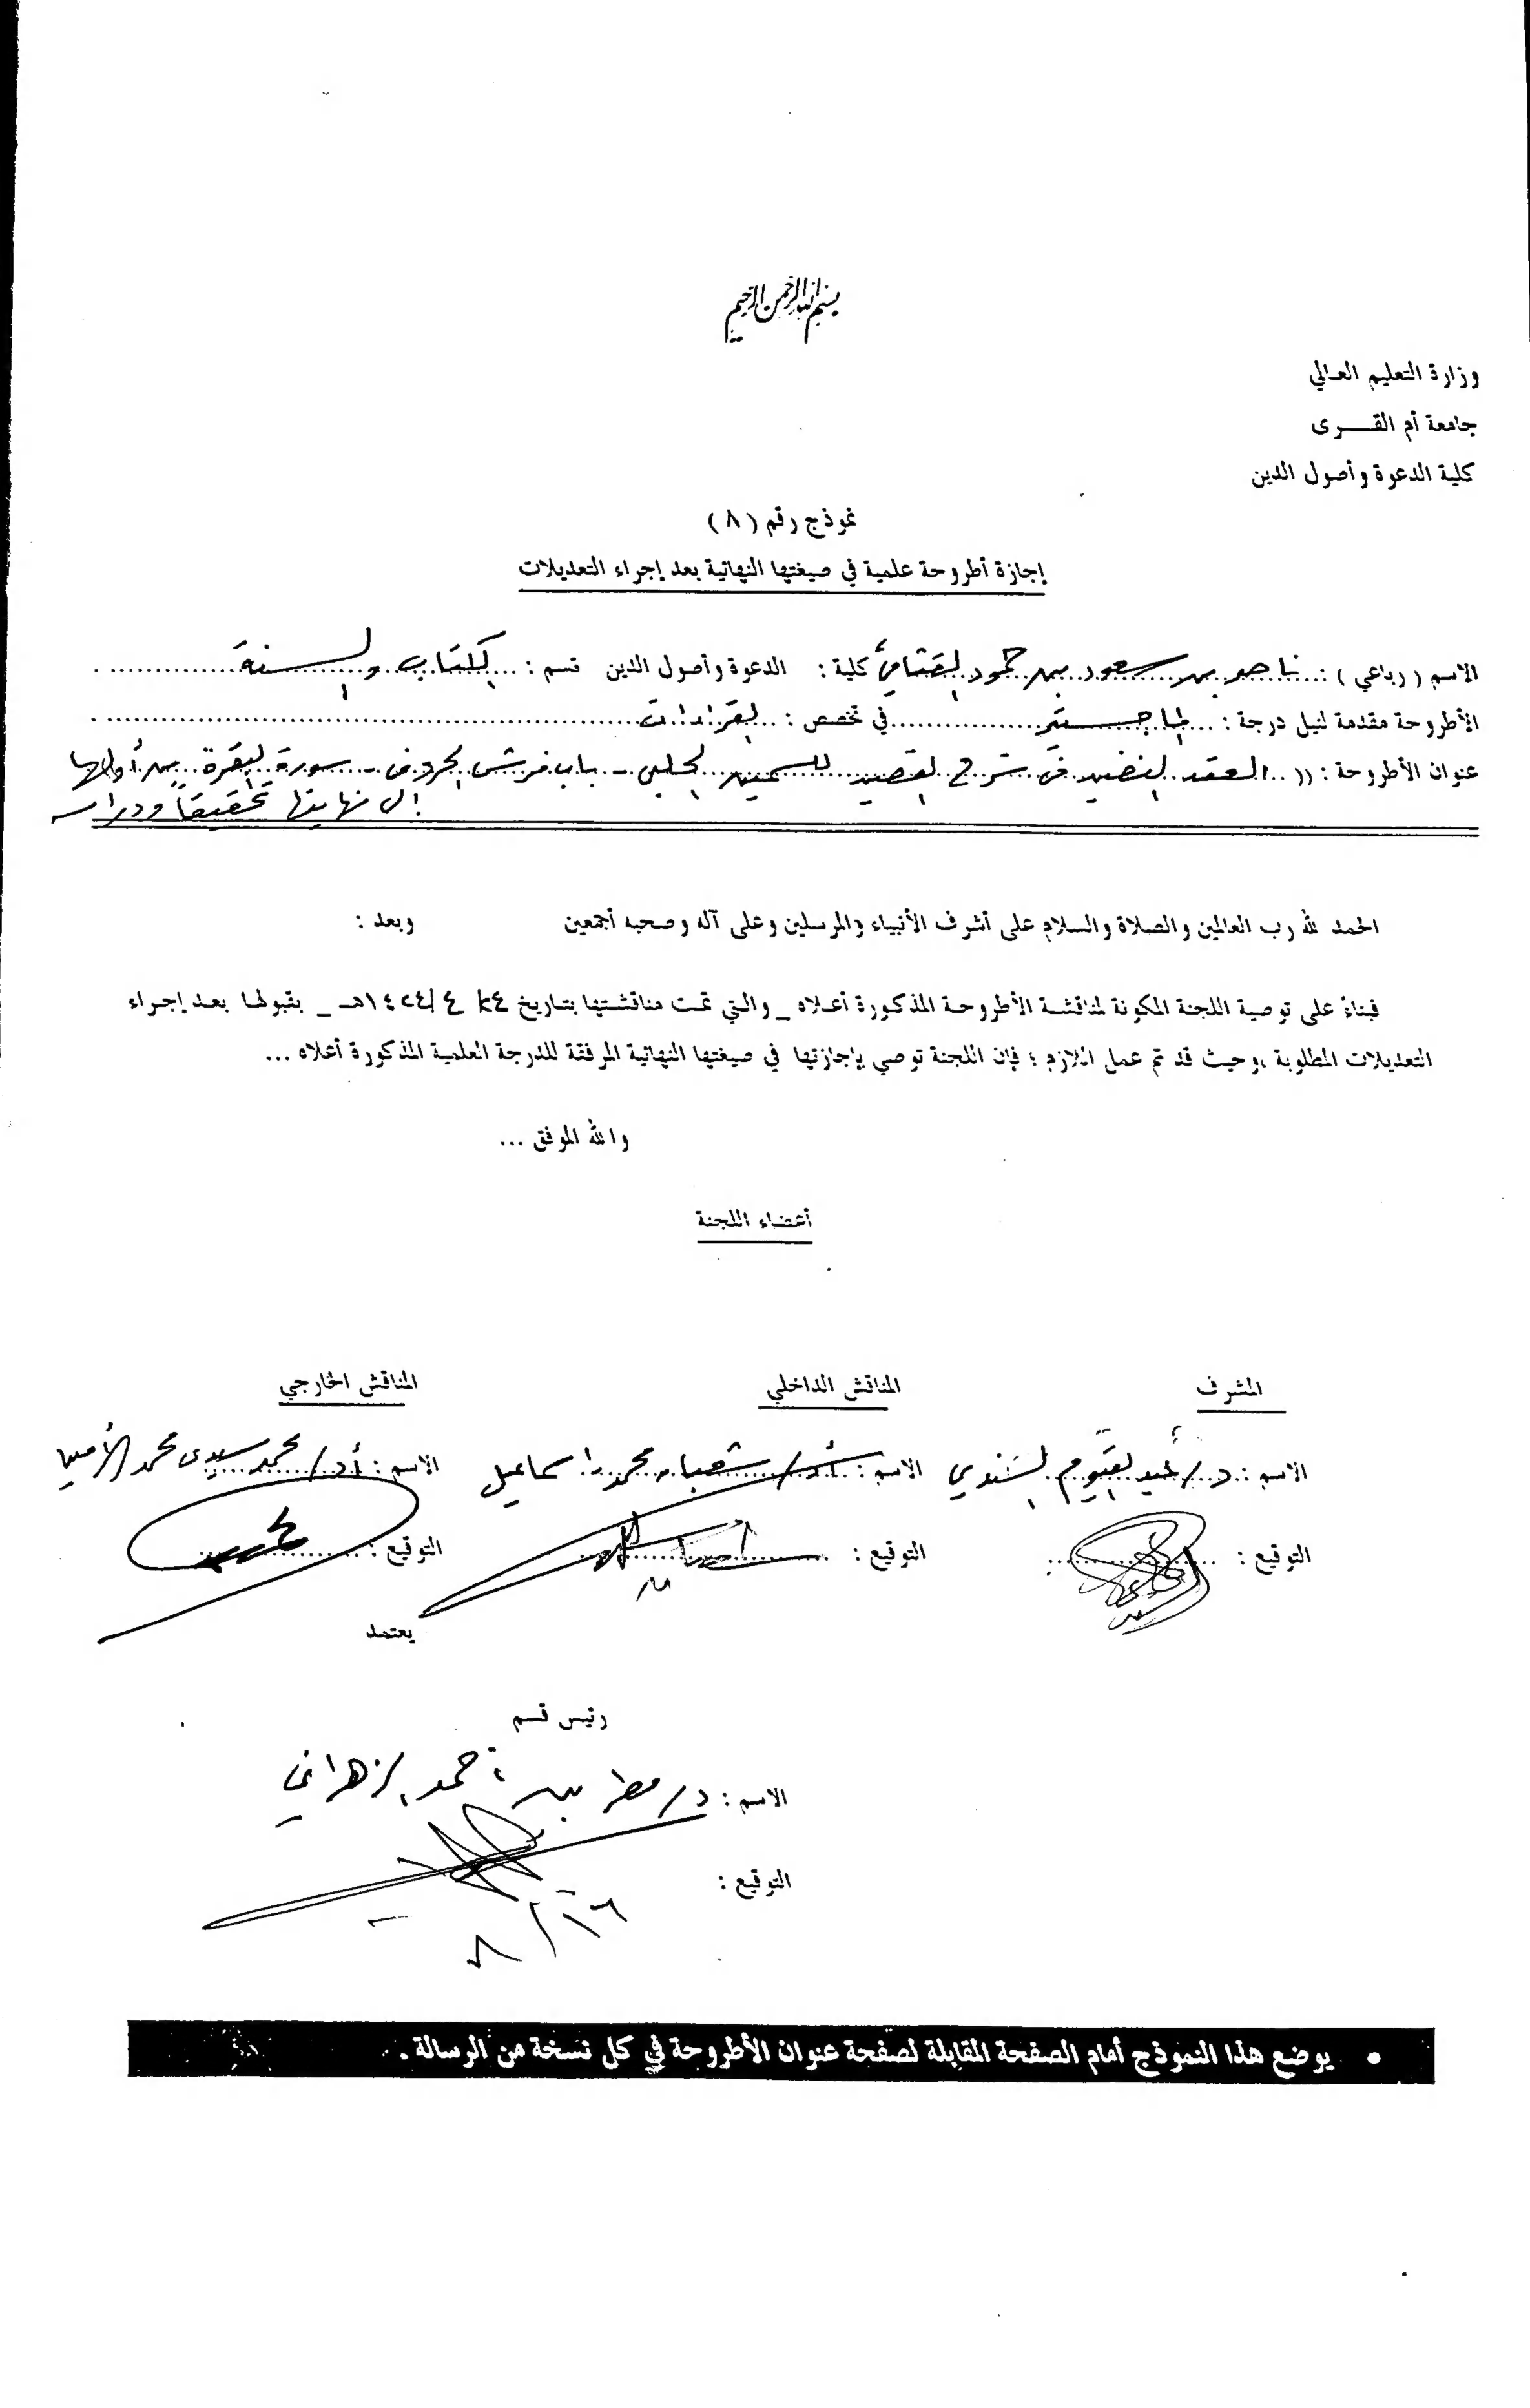 بسم الله الرحمن الرحيم
وزارة التعليم العالي
جامعة أم القـــرى
كلية الدعوة وأصول الدين
نموذج رقم ( ٨ )
إجازة أطروحة علمية في صيغتها النهائية بعد إجراء التعديلات
الاسم ( رباعي ) : ناصر بن سعود بن حمود القثامي كلية : الدعوة وأصول الدين قسم : الكتاب والسنة
الأطروحة مقدمة لنيل درجة : الماجستير في تخصص : القراءات
عنوان الأطروحة : (( العقد النضيد في شرح القصيد للسمين الحلبي - باب فرش الحروف - سورة البقرة من أولها
إلى نهايتها تحقيقاً ودراسة
الحمد لله رب العالمين والصلاة والسلام على أشرف الأنبياء والمرسلين وعلى آله وصحبه أجمعين وبعد :
فبناءً على توصية اللجنة المكونة لمناقشة الأطروحة المذكورة أعلاه _ والتي تمت مناقشتها بتاريخ ٢٤/ ٤ /١٤٢٤هـ _ بقبولها بعد إجراء
التعديلات المطلوبة ، وحيث قد تم عمل اللازم ؛ فإن اللجنة توصي بإجازتها في صيغتها النهائية المرفقة للدرجة العلمية المذكورة أعلاه ...
والله الموفق ...
أعضاء اللجنة
المشرف المناقش الداخلي المناقش الخارجي
الاسم : د/ عبد القيوم السندي الاسم : أ.د/ شعبان محمد إسماعيل الاسم : أ.د/ محمد سيدي محمد الأمين
التوقيع : التوقيع : التوقيع :
يعتمد
رئيس قسم
الاسم : د/ مطر بن أحمد الزهراني
التوقيع :
٨/١٦
• يوضع هذا النموذج أمام الصفحة المقابلة لصفحة عنوان الأطروحة في كل نسخة من الرسالة .